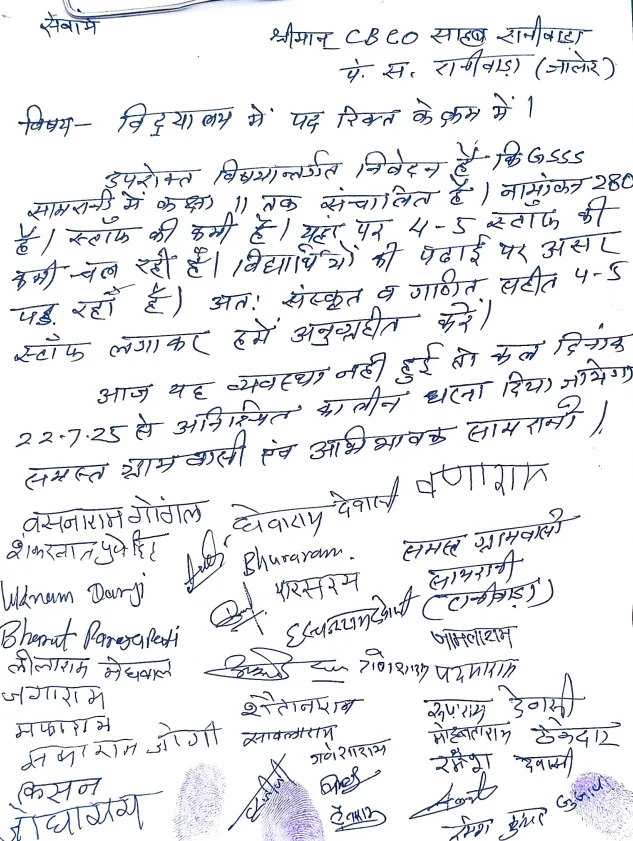 सेवामें
श्रीमान् CBEO साहब रानीवाड़ा
पं. स. रानीवाड़ा (जालोर)
विषय- विद्यालय में पद रिक्त के क्रम में।
उपरोक्त विषयान्तर्गत निवेदन है कि GSSS
सामरानी में कक्षा 11 तक संचालित है। नामांकन 280
है। स्टॉफ की कमी है। यहां पर 4-5 स्टाफ की
कमी चल रही है। विद्यार्थियों की पढाई पर असर
पड़ रहा है। अतः संस्कृत व गणित सहीत 4-5
स्टॉफ लगाकर हमें अनुग्रहीत करें।
आज यह व्यवस्था नही हुई तो कल दिनांक
22-7-25 से अनिश्चित कालीन धरना दिया जायेगा
समस्त ग्रामवासी एंव अभिभावक सामरानी।
वसनाराम गोंगल घेवाराम देवासी वणाराम
शंकरलाल पुरोहित Bhuraram. समस्त ग्रामवासी
सामरानी
Darji पारसराम (रानीवाड़ा)
Bharat जामताराम
लीलाराम मेघवाल गणेशाराम पदमाराम
जगाराम शैतानराम रूपाराम देवासी
मफाराम सावलाराम मोहबताराम ठेकेदार
सकाराम जोगी गणेशाराम रमेश देवासी
किसन
जोधाराम रमेश कुमार